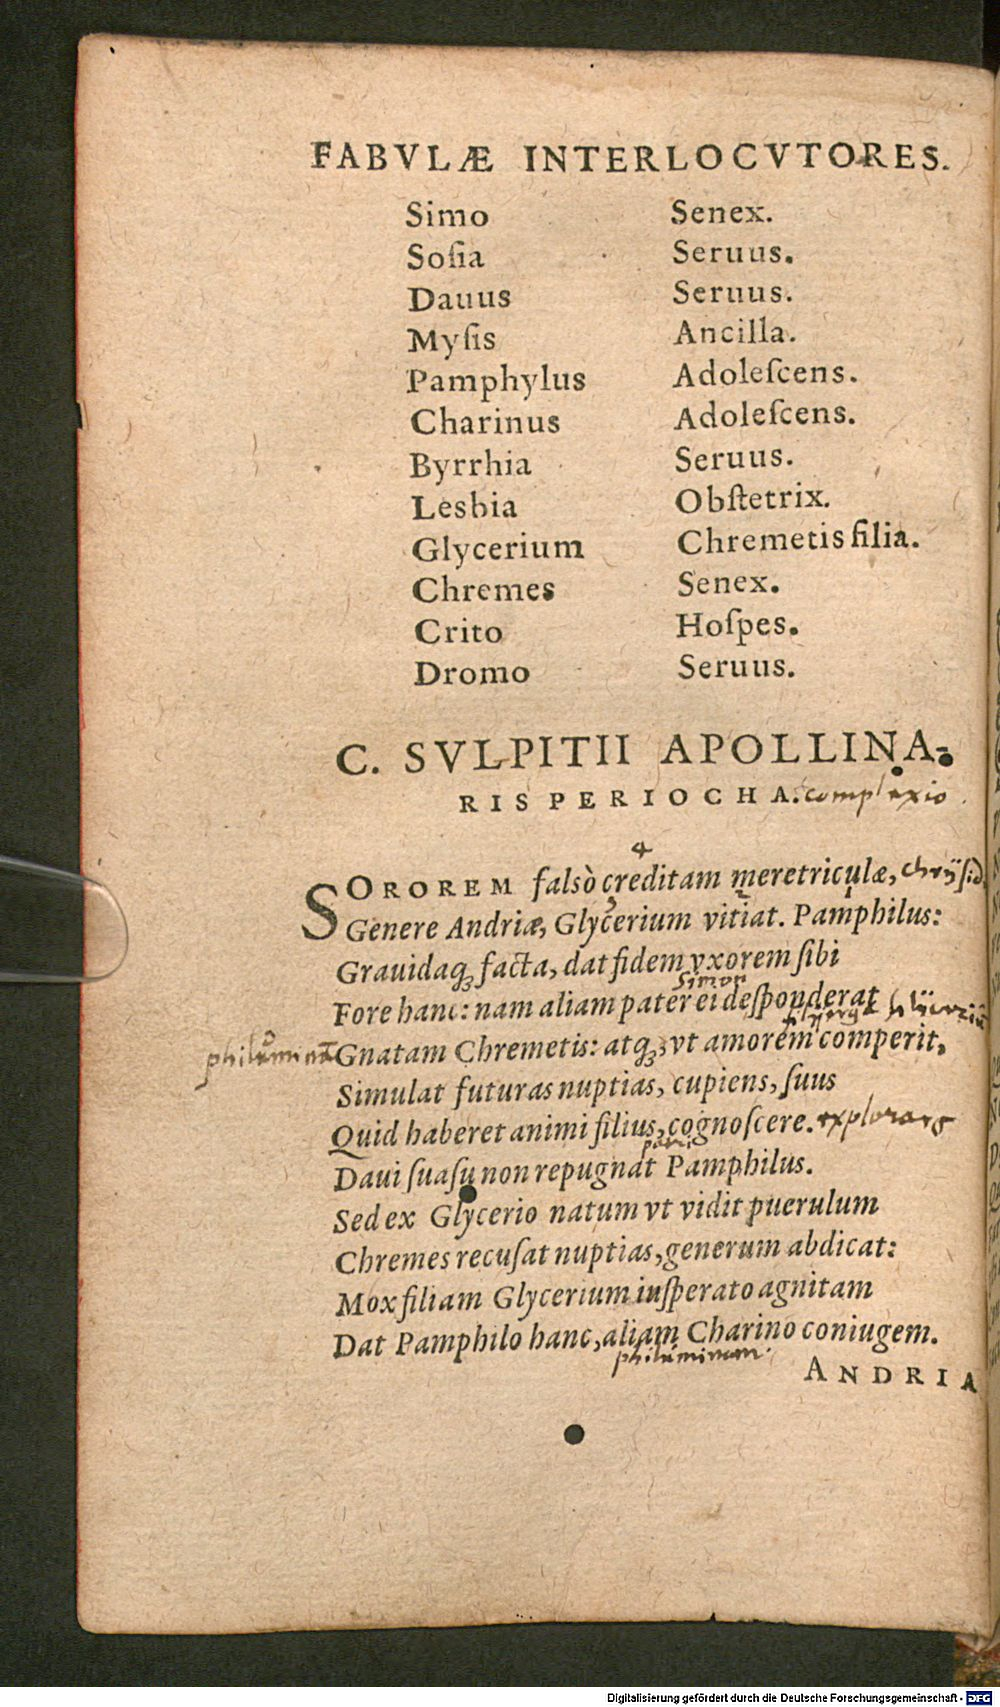 FABVLÆ INTERLOCVTORES.
Simo Senex.
Soſia Seruus.
Dauus Seruus.
Myſis Ancilla.
Pamphylus Adoleſcens.
Charinus Adoleſcens.
Byrrhia Seruus.
Lesbia Obſtetrix.
Glycerium Chremetis filia.
Chremes Senex.
Crito Hoſpes.
Dromo Seruus.
C. SVLPITII APOLLINA-
RIS PERIOCHA. complexio
4
SOROREM falsò creditam meretriculæ, chrÿsid
Genere Andriæ, Glycerium vitiat. Pamphilus:
Grauidaq; facta, dat fidem vxorem ſibi
Simon
Fore hanc: nam aliam pater ei deſponderat
philuminā Gnatam Chremetis: atq; vt amorem comperit,
Simulat futuras nuptias, cupiens, ſuus
Quid haberet animi filius, cognoſcere. explorare
Daui ſuaſu non repugnat Pamphilus.
Sed ex Glycerio natum vt vidit puerulum
Chremes recuſat nuptias, generum abdicat:
Mox filiam Glycerium inſperato agnitam
Dat Pamphilo hanc, aliam Charino coniugem.
philuminam
ANDRIA
Digitalisierung gefördert durch die Deutsche Forschungsgemeinschaft - DFG